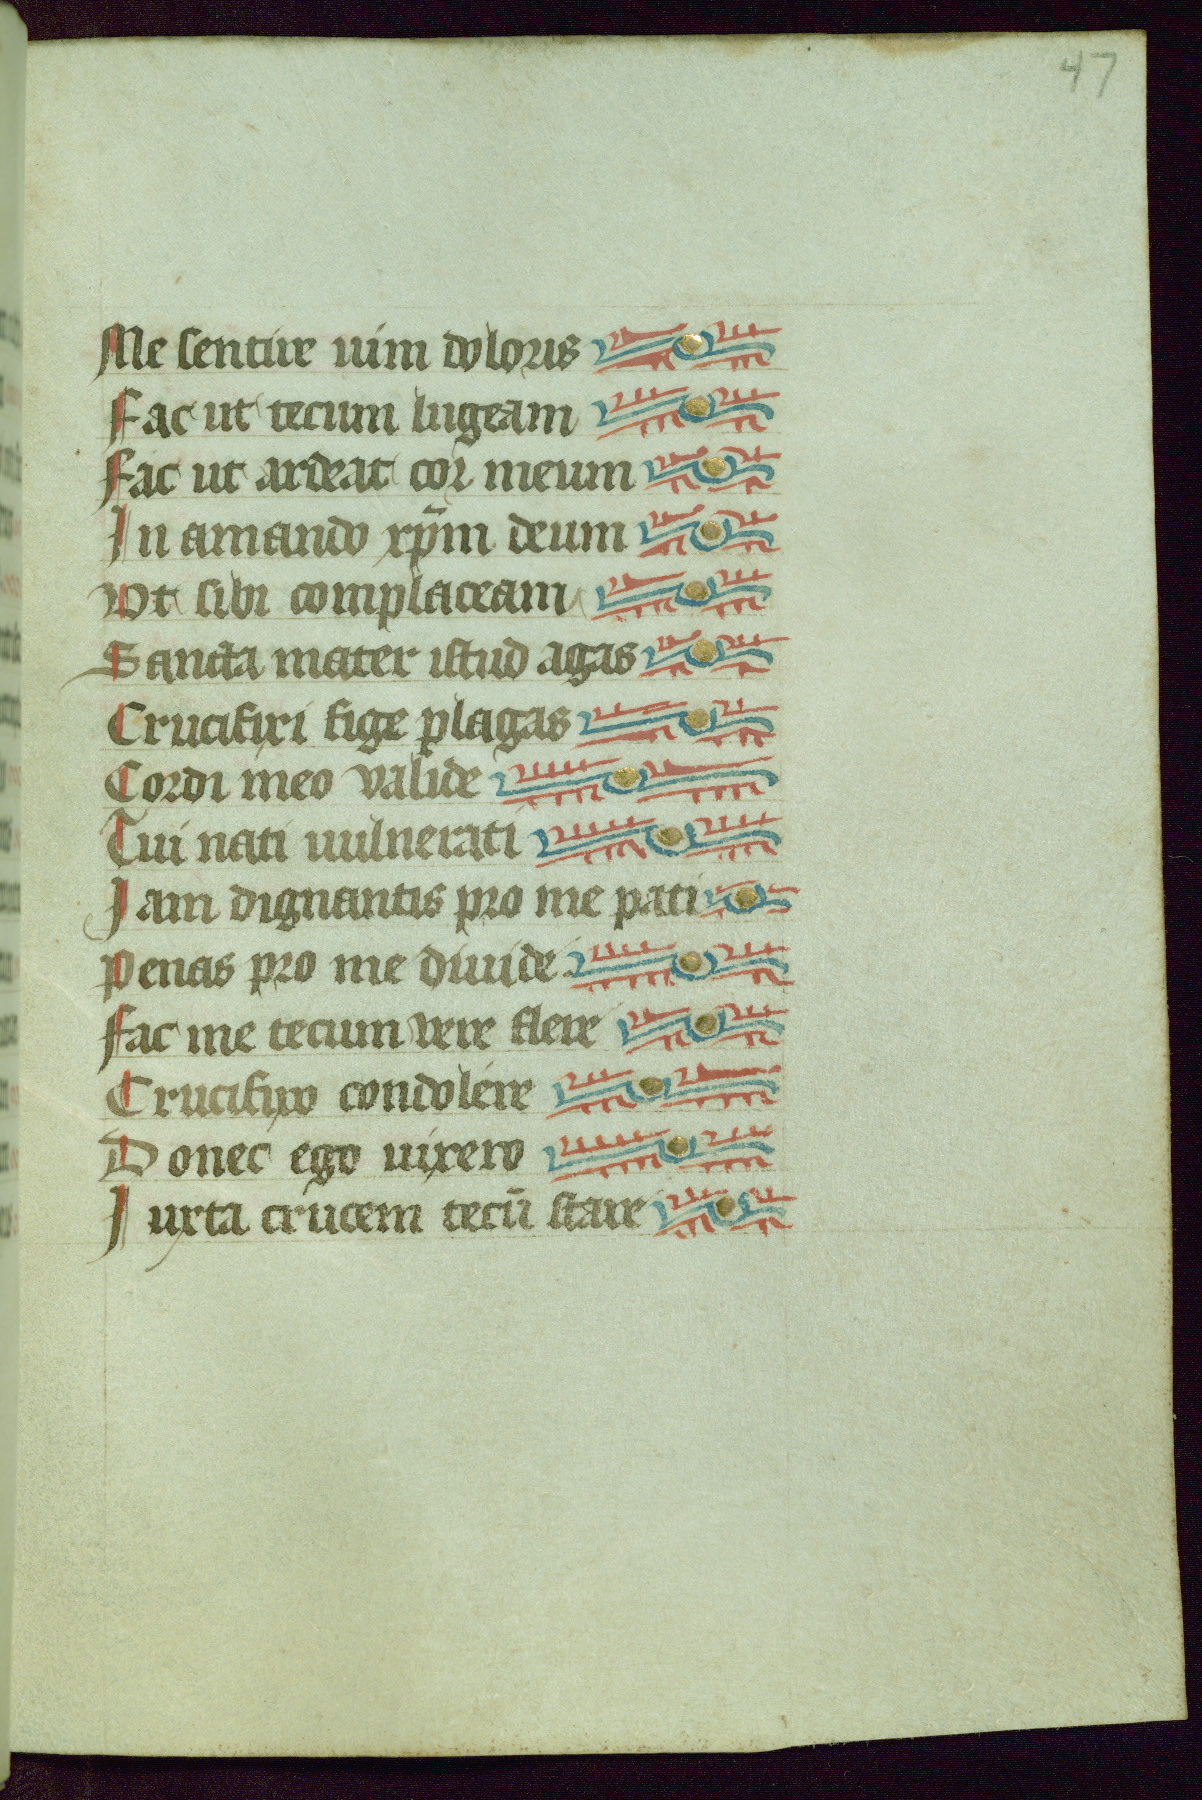 47
Me sentire uim doloris
Fac ut tecum lugeam
Fac ut ardeat cor meum
In amando xp̄m deum
Vt sibi complaceam
Sancta mater istud agas
Crucifixi fige plagas
Cordi meo valide
Tui nati uulnerati
Iam dignantis pro me pati
Penas pro me diuide
Fac me tecum vere flere
Crucifixo condolére
Donec ego uixero
Iuxta crucem tecū stare